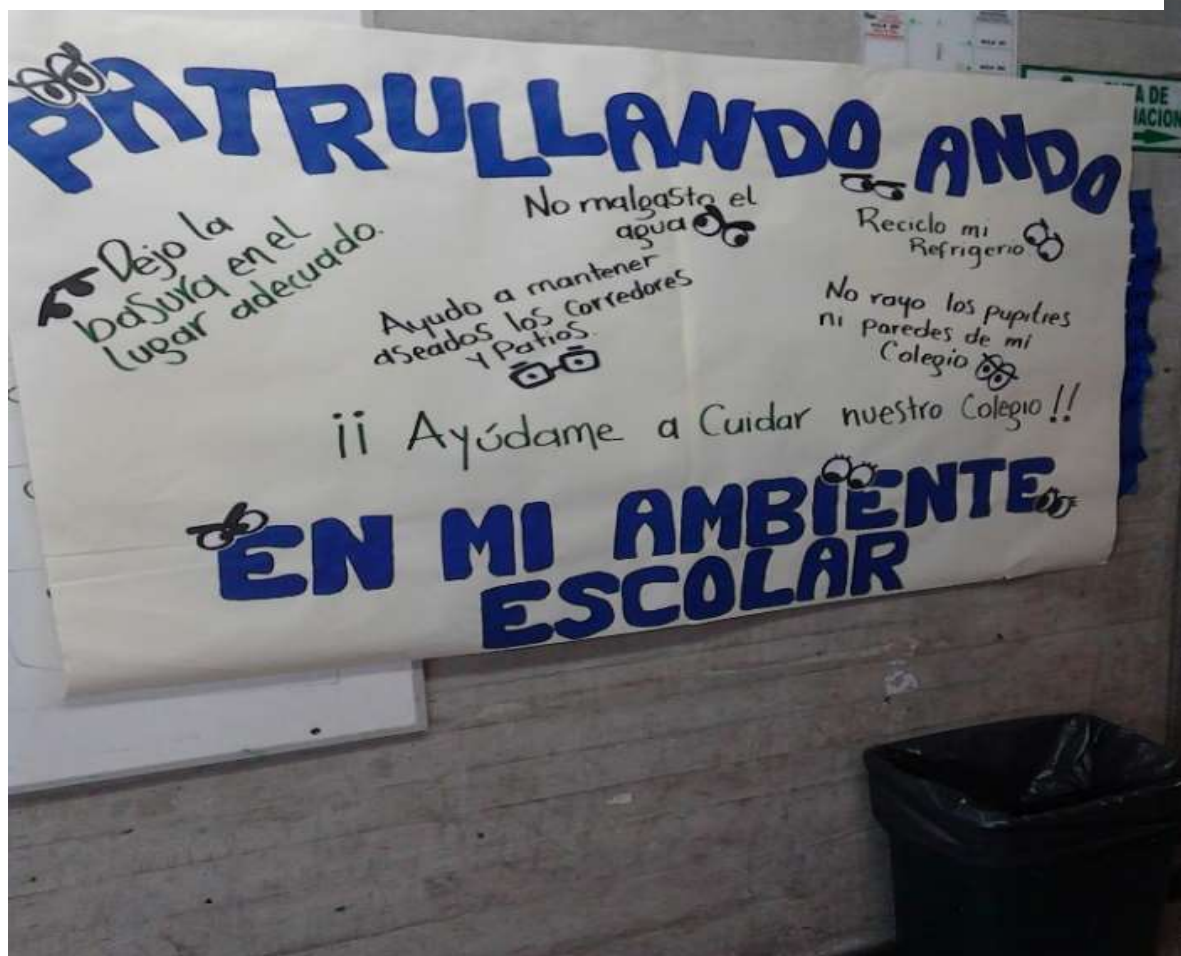 PATRULLANDO ANDO
Dejo la
basura en el
lugar adecuado.
No malgasto el
agua
Reciclo mi
Refrigerio
Ayudo a mantener
aseados los corredores
y Patios.
No rayo los pupitres
ni paredes de mi
Colegio
¡¡ Ayúdame a Cuidar nuestro Colegio !!
EN MI AMBIENTE
ESCOLAR
DE